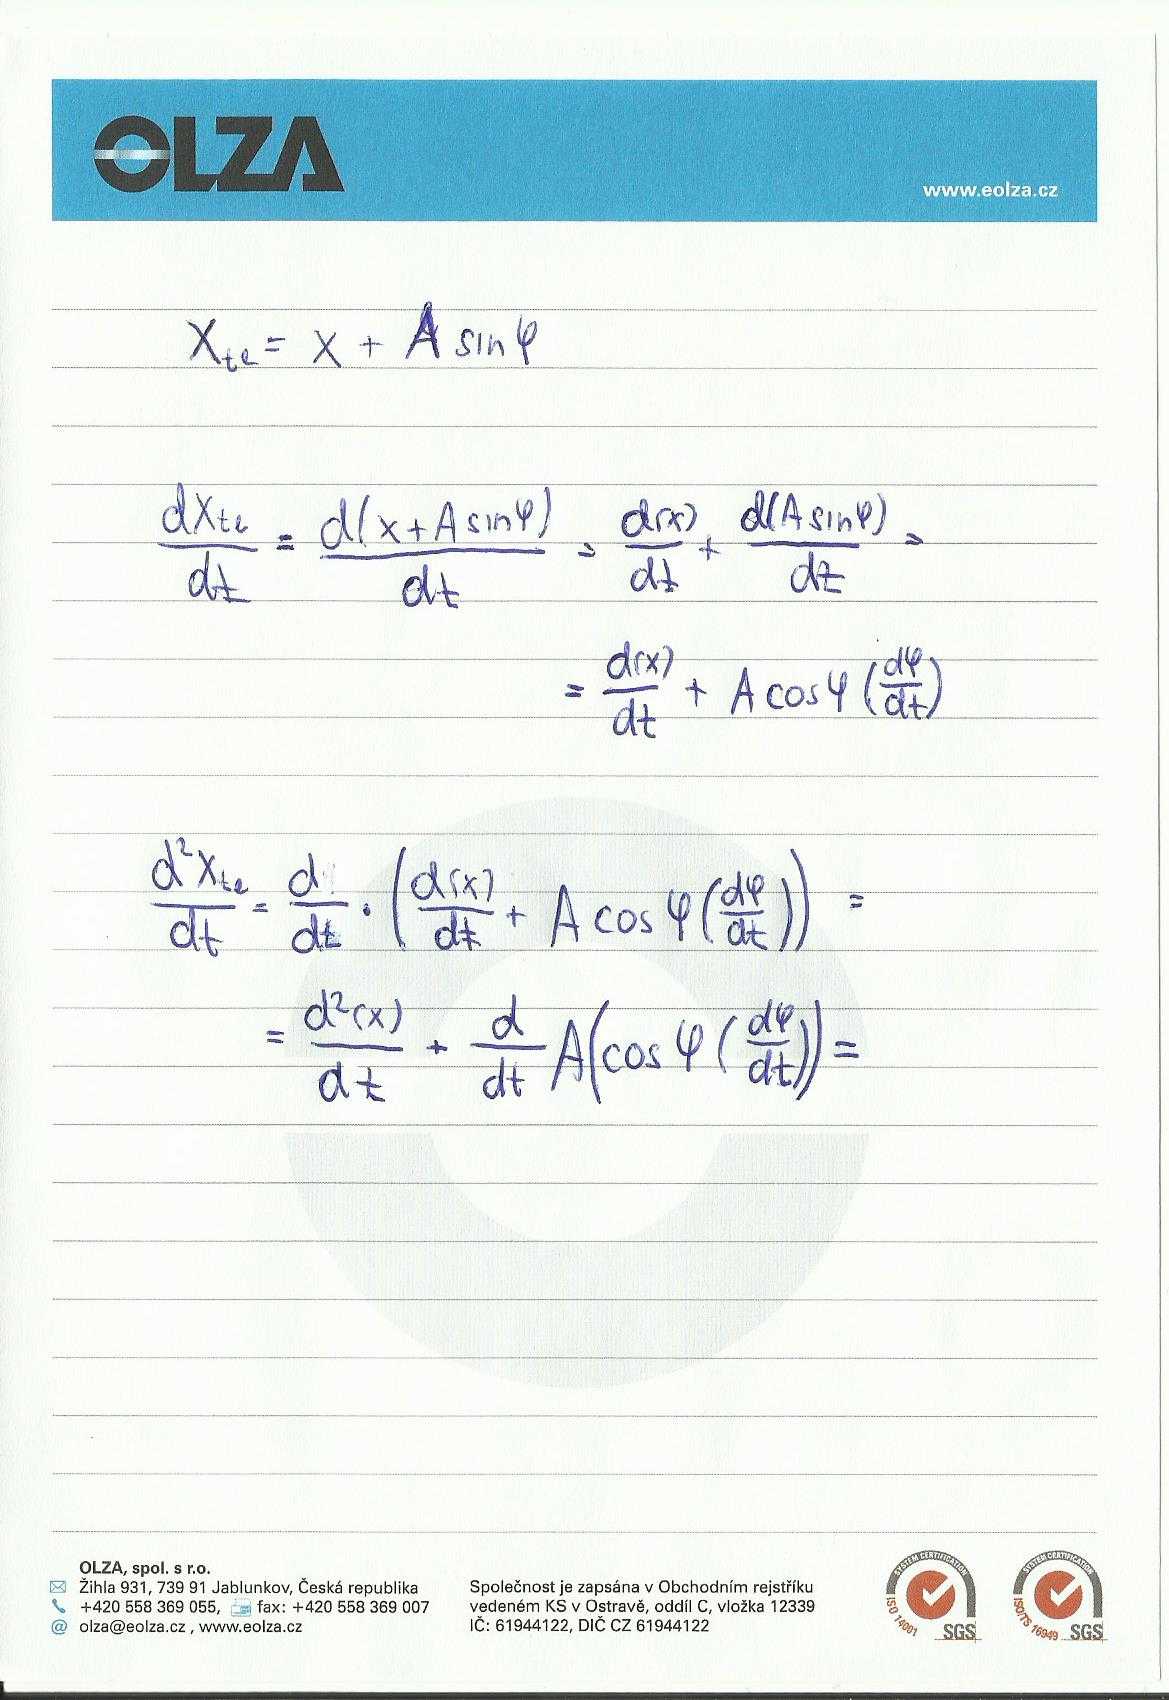 OLZA
www.eolza.cz
X_te = X + A sin φ
dX_te/dt = d(x + A sin φ)/dt = d(x)/dt + d(A sin φ)/dt =
= d(x)/dt + A cos φ (dφ/dt)
d²X_te/dt = d/dt · (d(x)/dt + A cos φ (dφ/dt)) =
= d²(x)/dt + d/dt A(cos φ (dφ/dt)) =
OLZA, spol. s r.o.
Žihla 931, 739 91 Jablunkov, Česká republika
+420 558 369 055, fax: +420 558 369 007
@ olza@eolza.cz , www.eolza.cz
Společnost je zapsána v Obchodním rejstříku
vedeném KS v Ostravě, oddíl C, vložka 12339
IČ: 61944122, DIČ CZ 61944122
SYSTEM CERTIFICATION
ISO 14001
SGS
SYSTEM CERTIFICATION
ISO/TS 16949
SGS